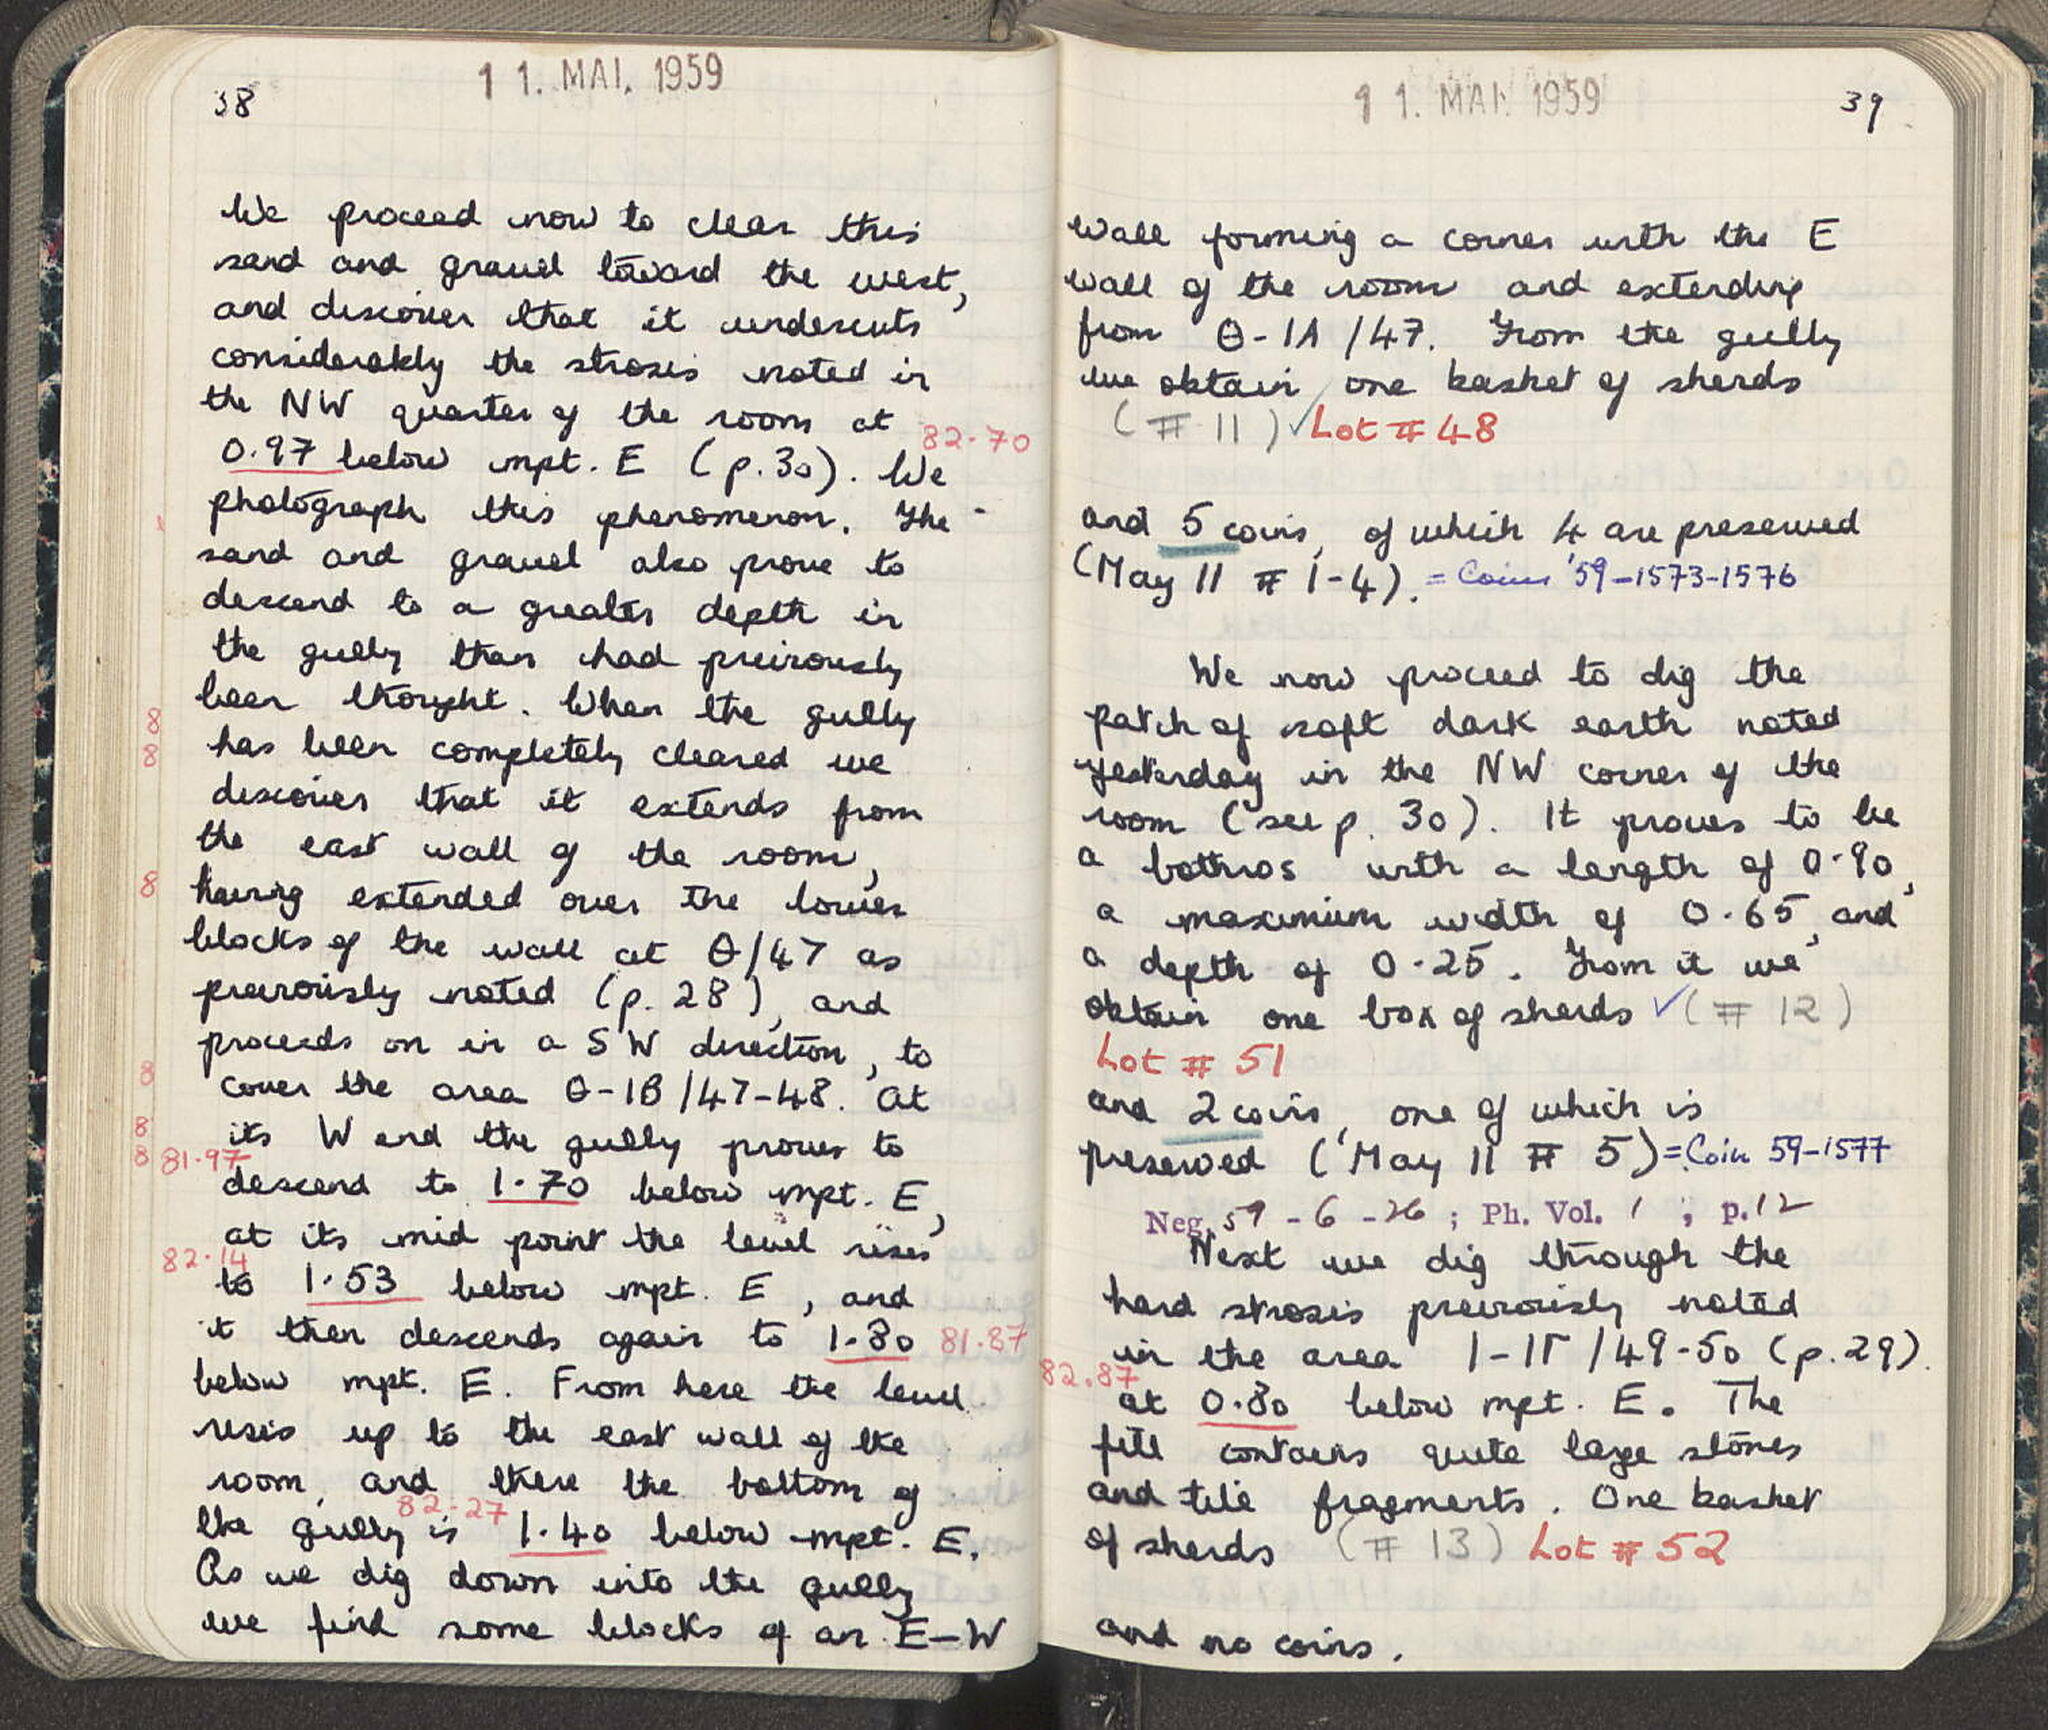 38
11. MAI. 1959
We proceed now to clear this
sand and gravel toward the west,
and discover that it undercuts
considerably the strosis noted in
the NW quarter of the room at
82.70
0.97 below mpt. E (p.30). We
photograph this phenomenon. The
sand and gravel also prove to
descend to a greater depth in
the gully than had previously
been thought. When the gully
8
has been completely cleared we
8
discover that it extends from
the east wall of the room,
8
having extended over the lower
blocks of the wall at Θ/47 as
previously noted (p. 28), and
proceeds on in a SW direction, to
8
cover the area Θ-ΙΒ/47-48. At
8
its W end the gully proves to
8 81.97
descend to 1.70 below mpt. E,
at its mid point the level rises
82.14
to 1.53 below mpt. E, and
it then descends again to 1.80 81.87
below mpt. E. From here the level
rises up to the east wall of the
room, and there the bottom of
82.27
the gully is 1.40 below mpt. E.
As we dig down into the gully
we find some blocks of an E-W
11. MAI 1959
39
wall forming a corner with the E
wall of the room and extending
from Θ-ΙΑ/47. From the gully
we obtain one basket of sherds
(# 11) ✓ Lot # 48
and 5 coins, of which 4 are preserved
(May 11 # 1-4). = Coins '59-1573-1576
We now proceed to dig the
patch of soft dark earth noted
yesterday in the NW corner of the
room (see p. 30). It proves to be
a bothros with a length of 0.90,
a maximum width of 0.65, and
a depth of 0.25. From it we
obtain one box of sherds ✓ (# 12)
Lot # 51
and 2 coins, one of which is
preserved (May 11 # 5) = Coin 59-1577
Neg. 59-6-26; Ph. Vol. 1, p.12
Next we dig through the
hard strosis previously noted
in the area Ι-ΙΓ/49-50 (p.29).
82.87
at 0.80 below mpt. E. The
fill contains quite large stones
and tile fragments. One basket
of sherds (# 13) Lot # 52
and no coins.